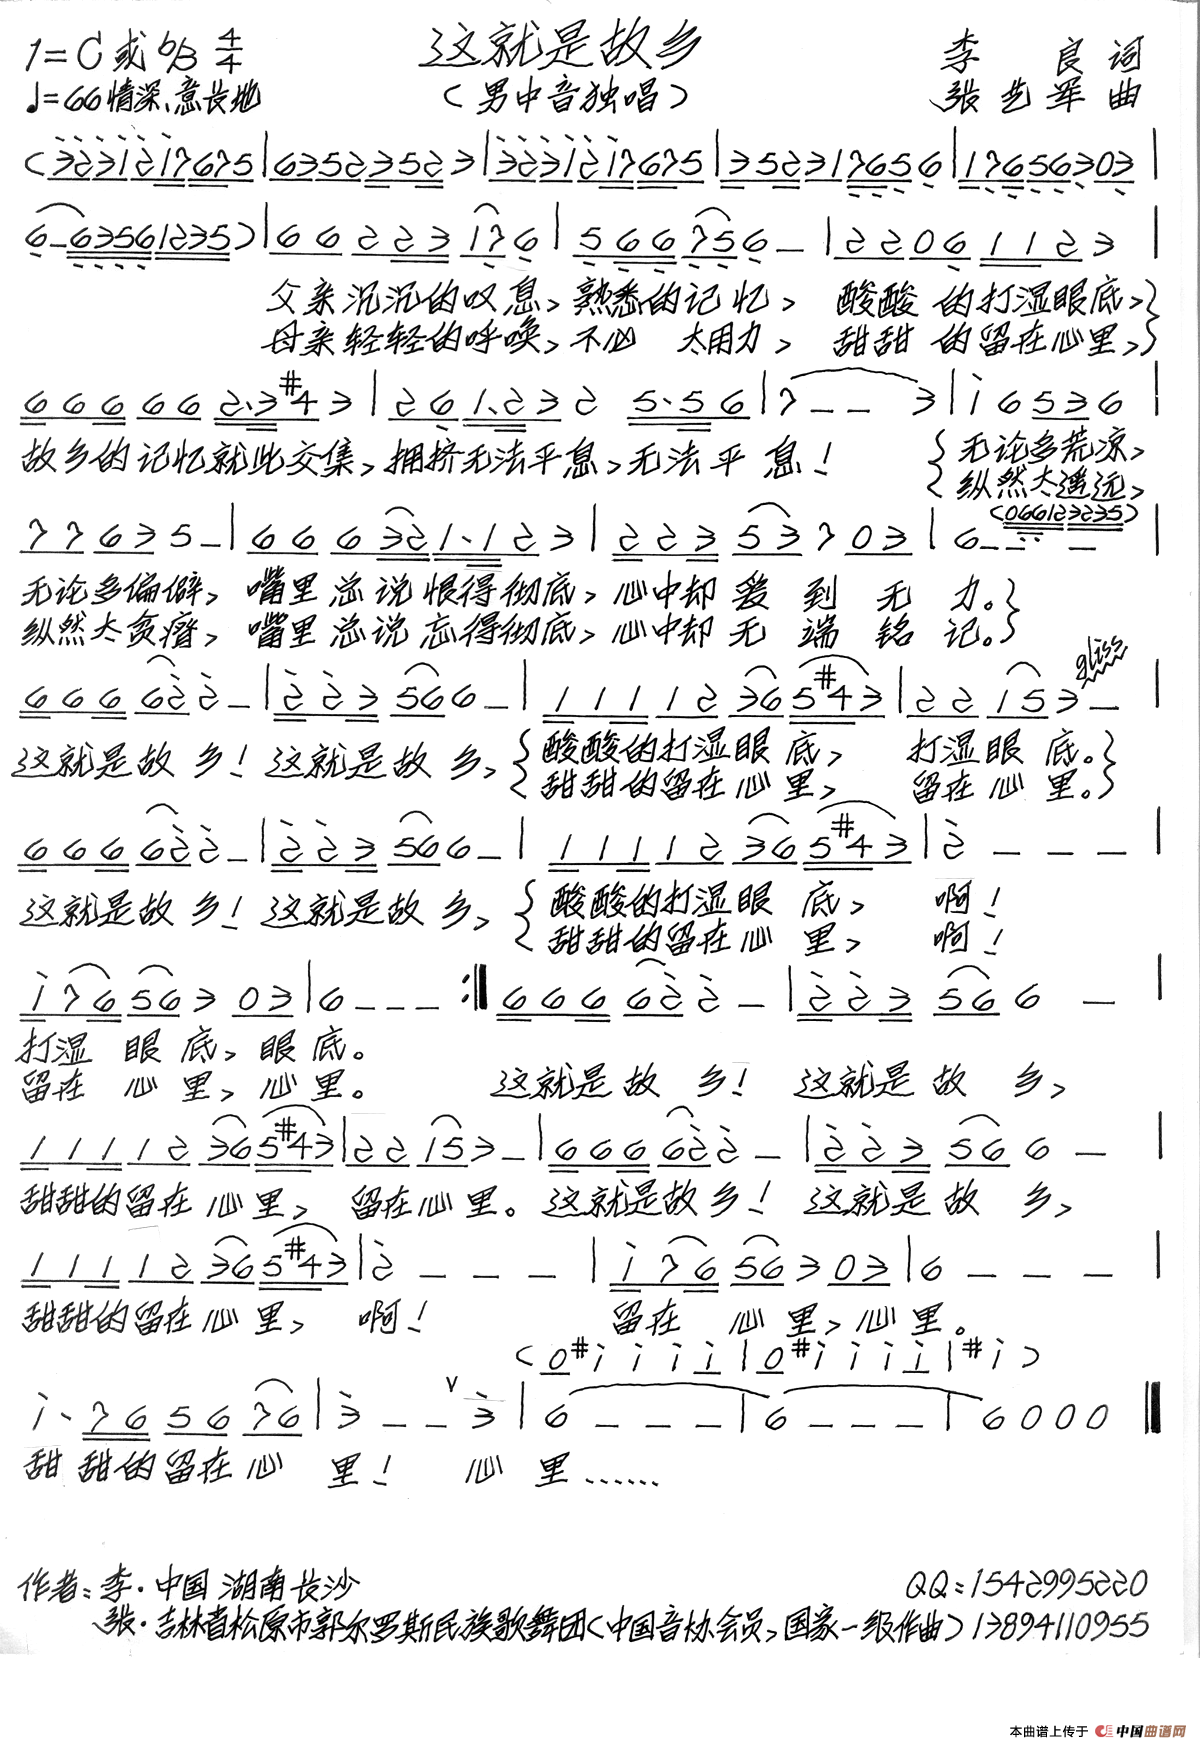 这就是故乡
1=C或bB 4/4
李良词
♩=66 情深、意长地
(男中音独唱)
张艺军曲
(3231217675|63523523|3231217675|352317656|17656303|
6-63561235)|66223176|566756-|22061123|
父亲沉沉的叹息,熟悉的记忆,酸酸的打湿眼底,}
母亲轻轻的呼唤,不必太用力,甜甜的留在心里,}
666662.3#43|261.232 5.56|7--3|i6536|
故乡的记忆就此交集,拥挤无法平息,无法平息!{无论多荒凉,
{纵然太遥远,
(066123235)
77635-|666321.123|22353703|6---|
无论多偏僻,嘴里总说恨得彻底,心中却爱到无力。}
纵然太贪瘠,嘴里总说忘得彻底,心中却无端铭记。}
gliss
666622-|223566-|11112365#43|22153-|
这就是故乡!这就是故乡,{酸酸的打湿眼底,打湿眼底。}
{甜甜的留在心里,留在心里。}
666622-|223566-|11112365#43|2---|
这就是故乡!这就是故乡,{酸酸的打湿眼底,啊!
{甜甜的留在心里,啊!
i7656303|6---:‖666622-|223566-|
打湿眼底,眼底。
留在心里,心里。这就是故乡!这就是故乡,
11112365#43|22153-|666622-|223566-|
甜甜的留在心里,留在心里。这就是故乡!这就是故乡,
11112365#43|2---|i7656303|6---|
甜甜的留在心里,啊!留在心里,心里。
(0#iiii|0#iiii|#i)
i.765676|3--∨3|6---|6---|6000‖
甜甜的留在心里!心里……
作者:李·中国湖南长沙 QQ:1542995220
张·吉林省松原市郭尔罗斯民族歌舞团(中国音协会员,国家一级作曲)13894110955
本曲谱上传于 中国曲谱网